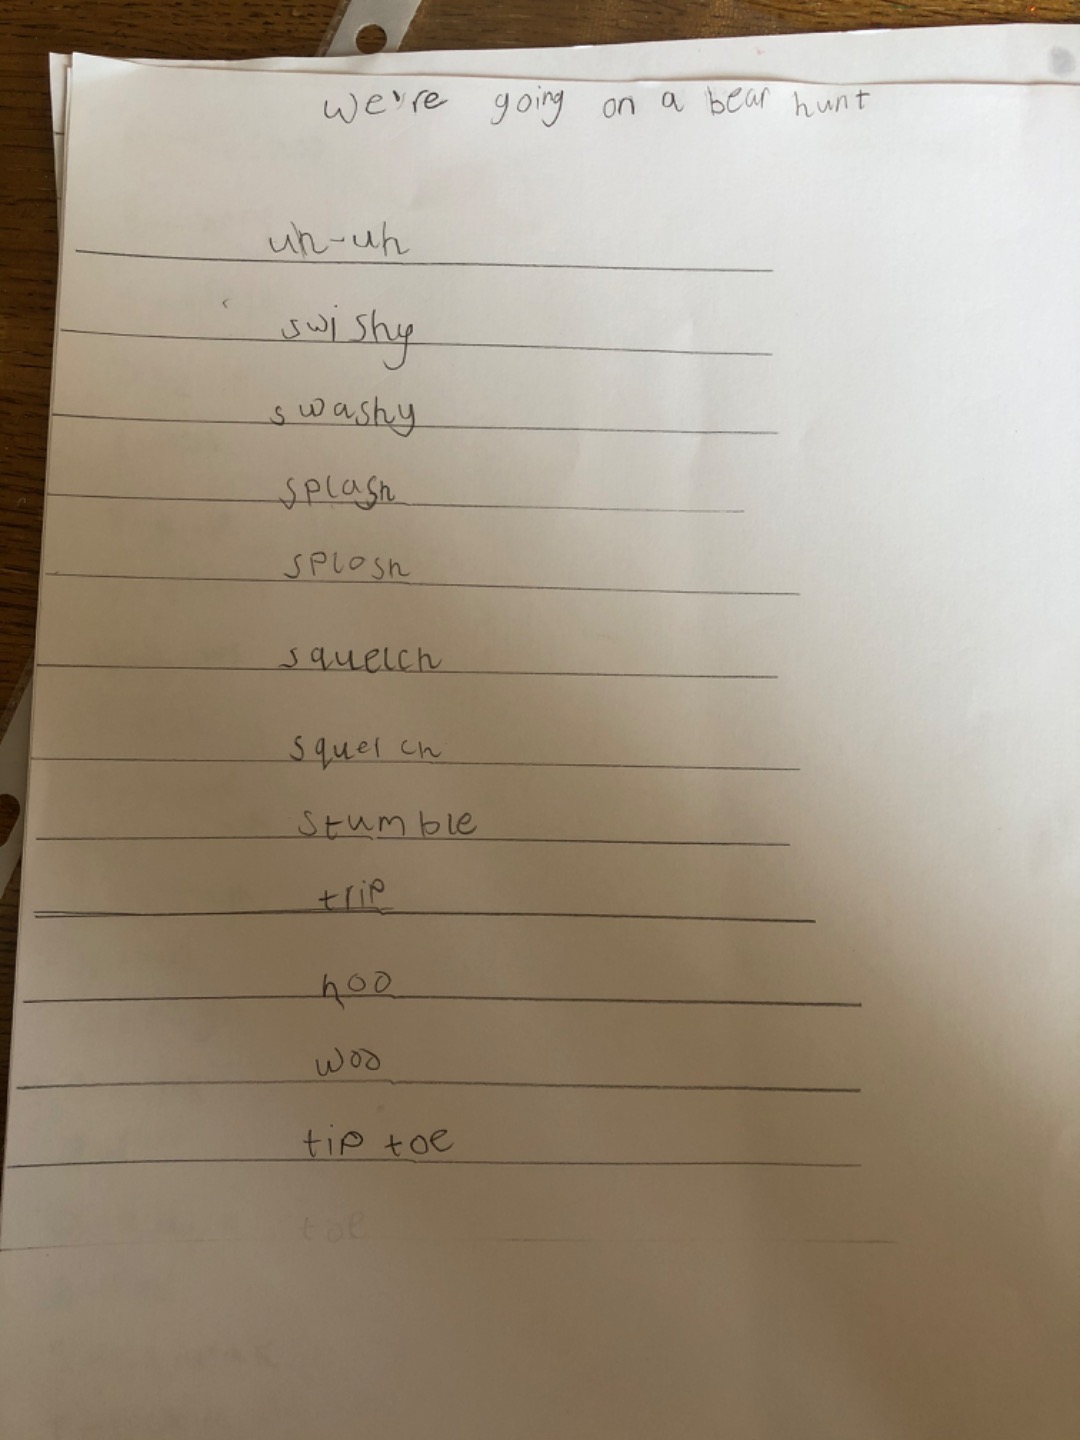 we're going on a bear hunt
uh-uh
swishy
swashy
splash
splosh
squelch
squelch
stumble
trip
hoo
woo
tip toe
toe